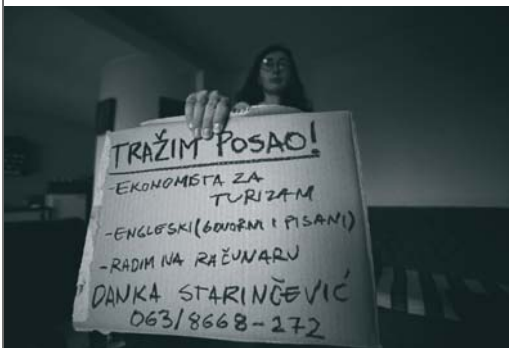 TRAŽIM POSAO!
-EKONOMISTA ZA
TURIZAM
-ENGLESKI (GOVORNI I PISANI)
-RADIM NA RAČUNARU
DANKA STARINČEVIĆ
063/8668-272